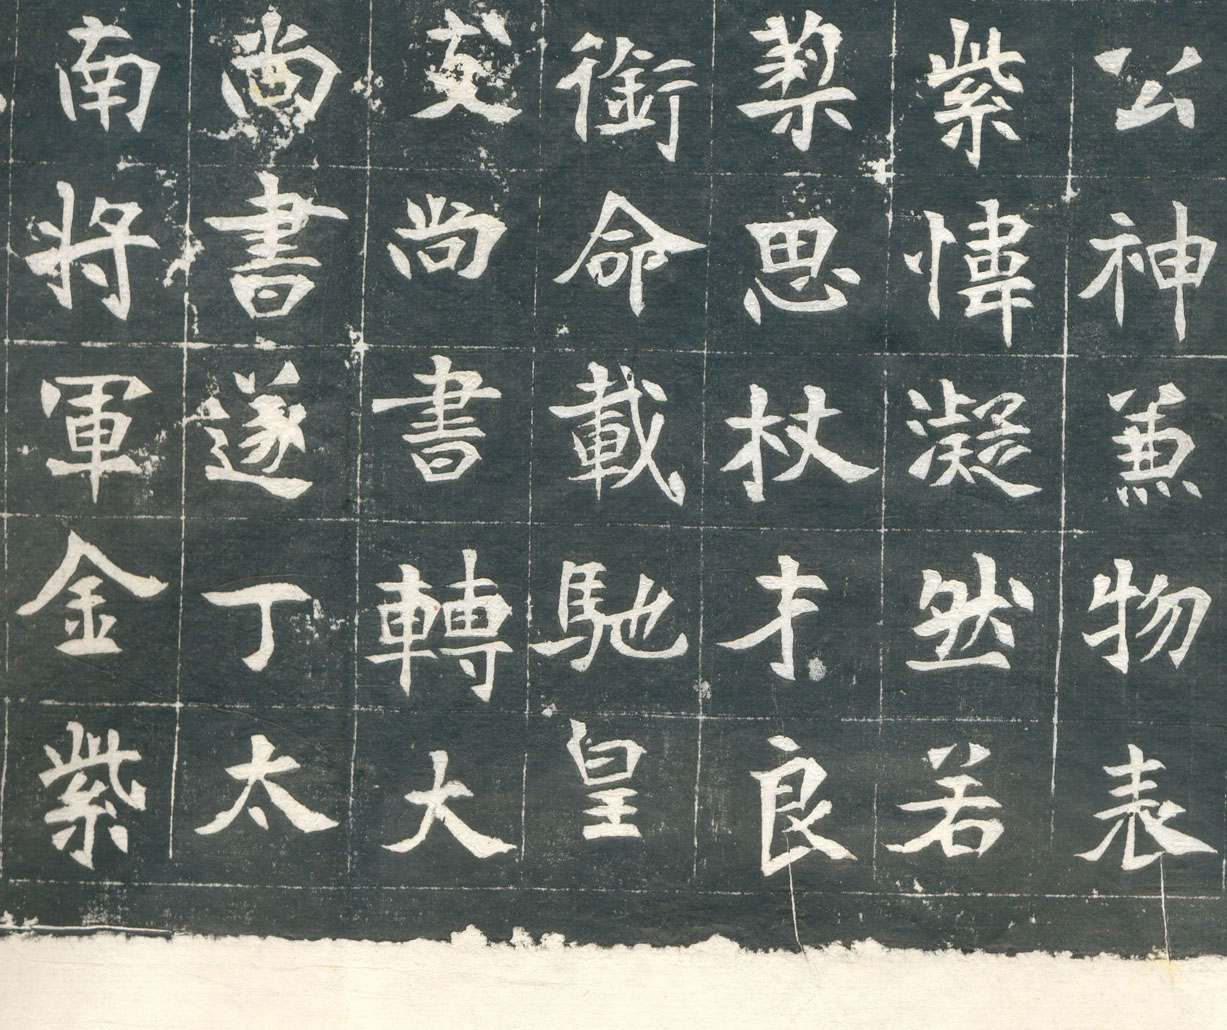 公神兼物表
紫幃凝然若
思杖才良
銜命載馳皇
尚書轉大
尚書遂丁太
南將軍金紫